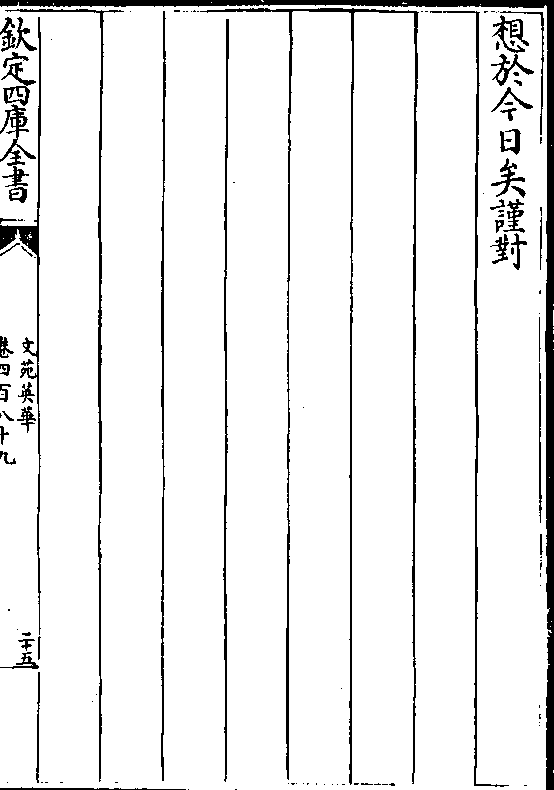 想於今日矣謹對
欽定四庫全書
文苑英華
卷四百八十九
二十五